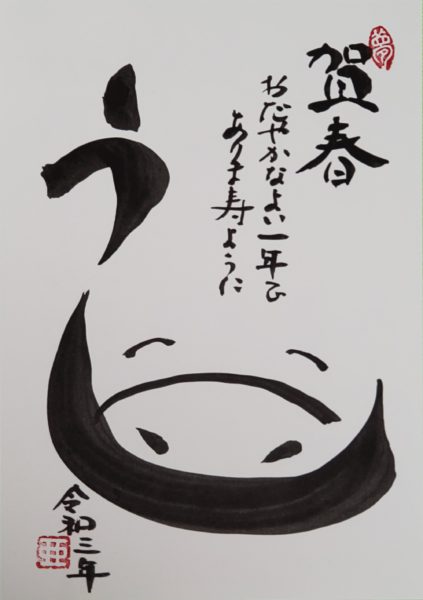 夢
賀春
おだやかなよい一年で
ありま寿ように
うし
令和三年
亜